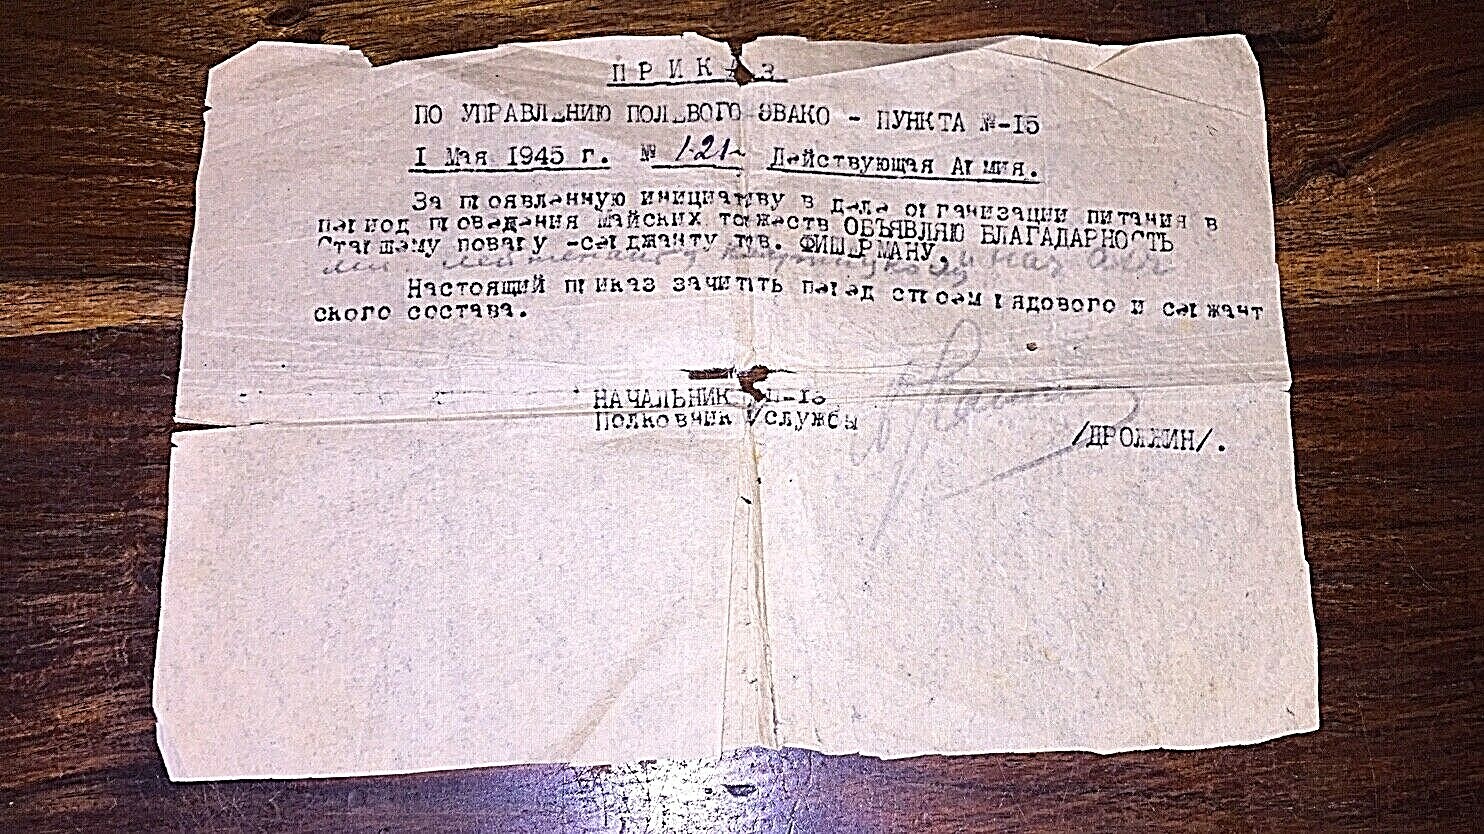 ПРИКАЗ
ПО УПРАВЛЕНИЮ ПОЛЕВОГО ЭВАКО - ПУНКТА №-15
1 Мая 1945 г. № 121 Действующая Армия.
За проявленную инициативу в деле организации питания в
период проведения майских торжеств ОБЪЯВЛЯЮ БЛАГАДАРНОСТЬ
Старшему повару -сержанту тов. ФИШЕРМАНУ.
Настоящий приказ зачитать перед строем рядового и сержант
ского состава.
НАЧАЛЬНИК
Полковник службы
/ДРОЛЖИН/.